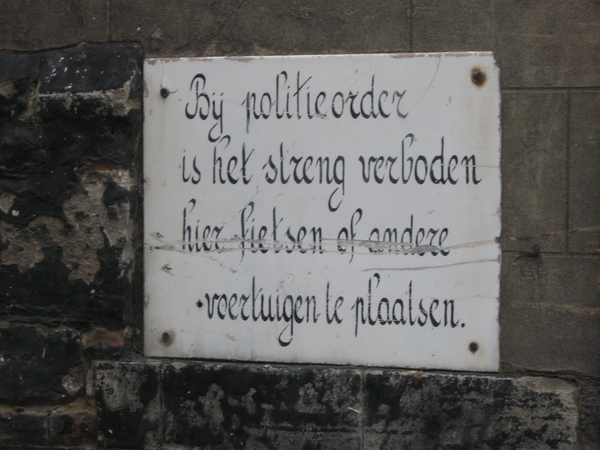 Bij politieorder
is het streng verboden
hier fietsen of andere
voertuigen te plaatsen.